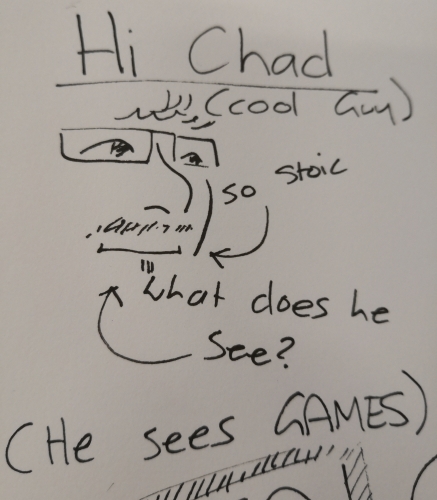 Hi Chad
(cool Guy)
so stoic
What does he
See?
(He sees GAMES)